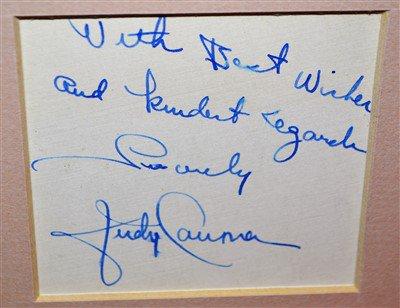 With Best Wishes
and kindest regards
Sincerely
Judy